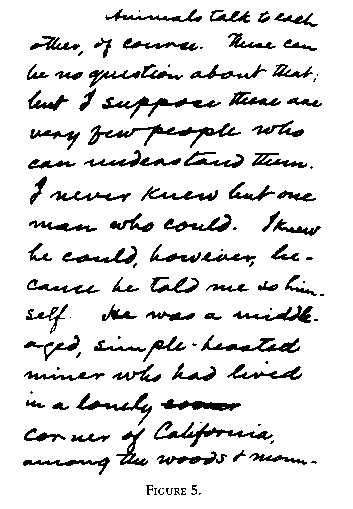 Animals talk to each
other, of course. There can
be no question about that;
but I suppose there are
very few people who
can understand them.
I never knew but one
man who could. I knew
he could, however, be-
cause he told me so him-
self. He was a middle-
aged, simple-hearted
miner who had lived
in a lonely
corner of California,
among the woods & moun-
FIGURE 5.